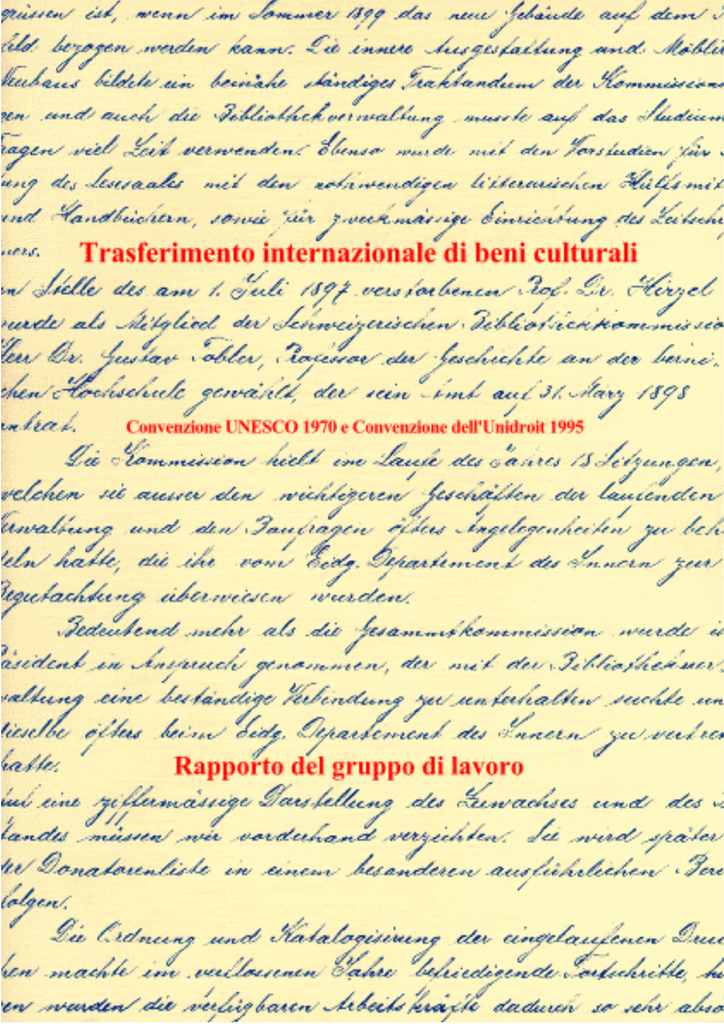 grüssen ist, wenn im Sommer 1899 das neue Gebäude auf dem
feld bezogen werden kann. Die innere Ausgestaltung und Möblir
Neubaus bildete ein beinahe ständiges Traktandum der Kommissions
en und auch die Bibliothekverwaltung musste auf das Studium
ragen viel Zeit verwenden. Ebenso wurde mit den Vorstudien für
ung des Lesesaales mit den nothwendigen litterarischen Hülfsmit
und Handbüchern, sowie für zweckmässige Einrichtung des Zeitsch
mers.
Trasferimento internazionale di beni culturali
n Stelle des am 1. Juli 1897 verstorbenen Prof. Dr. Hirzel
wurde als Mitglied der Schweizerischen Bibliothekkommissio
Herr Dr. Gustav Tobler, Professor der Geschichte an der berni
chen Hochschule gewählt, der sein Amt auf 31. März 1898
antrat.
Convenzione UNESCO 1970 e Convenzione dell'Unidroit 1995
Die Kommission hielt im Laufe des Jahres 18 Sitzungen,
welchen sie ausser den wichtigeren Geschäften der laufenden
Verwaltung und den Baufragen öfters Angelegenheiten zu beh
deln hatte, die ihr vom Eidg. Departement des Innern zur
Begutachtung überwiesen wurden.
Bedeutend mehr als die Gesammtkommission wurde i
räsident in Anspruch genommen, der mit der Bibliothekver
waltung eine beständige Verbindung zu unterhalten suchte un
dieselbe öfters beim Eidg. Departement des Innern zu vertre
hatte.
Rapporto del gruppo di lavoro
uf eine ziffermässige Darstellung des Zuwachses und des
tandes müssen wir vorderhand verzichten. Sie wird später
der Donatorenliste in einem besonderen ausführlichen Beri
folgen.
Die Ordnung und Katalogisirung der eingelaufenen Druc
hen machte im verflossenen Jahre befriedigende Fortschritte,
en wurden die verfügbaren Arbeitskräfte dadurch so sehr abso